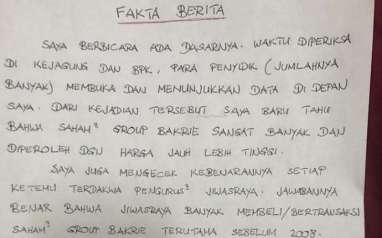 FAKTA BERITA
SAYA BERBICARA ADA DASARNYA. WAKTU DIPERIKSA
DI KEJAGUNG DAN BPK, PARA PENYIDIK (JUMLAHNYA
BANYAK) MEMBUKA DAN MENUNJUKKAN DATA DI DEPAN
SAYA. DARI KEJADIAN TERSEBUT SAYA BARU TAHU
BAHWA SAHAM² GROUP BAKRIE SANGAT BANYAK DAN
DIPEROLEH DGN HARGA JAUH LEBIH TINGGI.
SAYA JUGA MENGECEK KEBENARANNYA SETIAP
KETEMU TERDAKWA PENGURUS² JIWASRAYA. JAWABANNYA
BENAR BAHWA JIWASRAYA BANYAK MEMBELI/BERTRANSAKSI
SAHAM² GROUP BAKRIE TERUTAMA SEBELUM 2008.